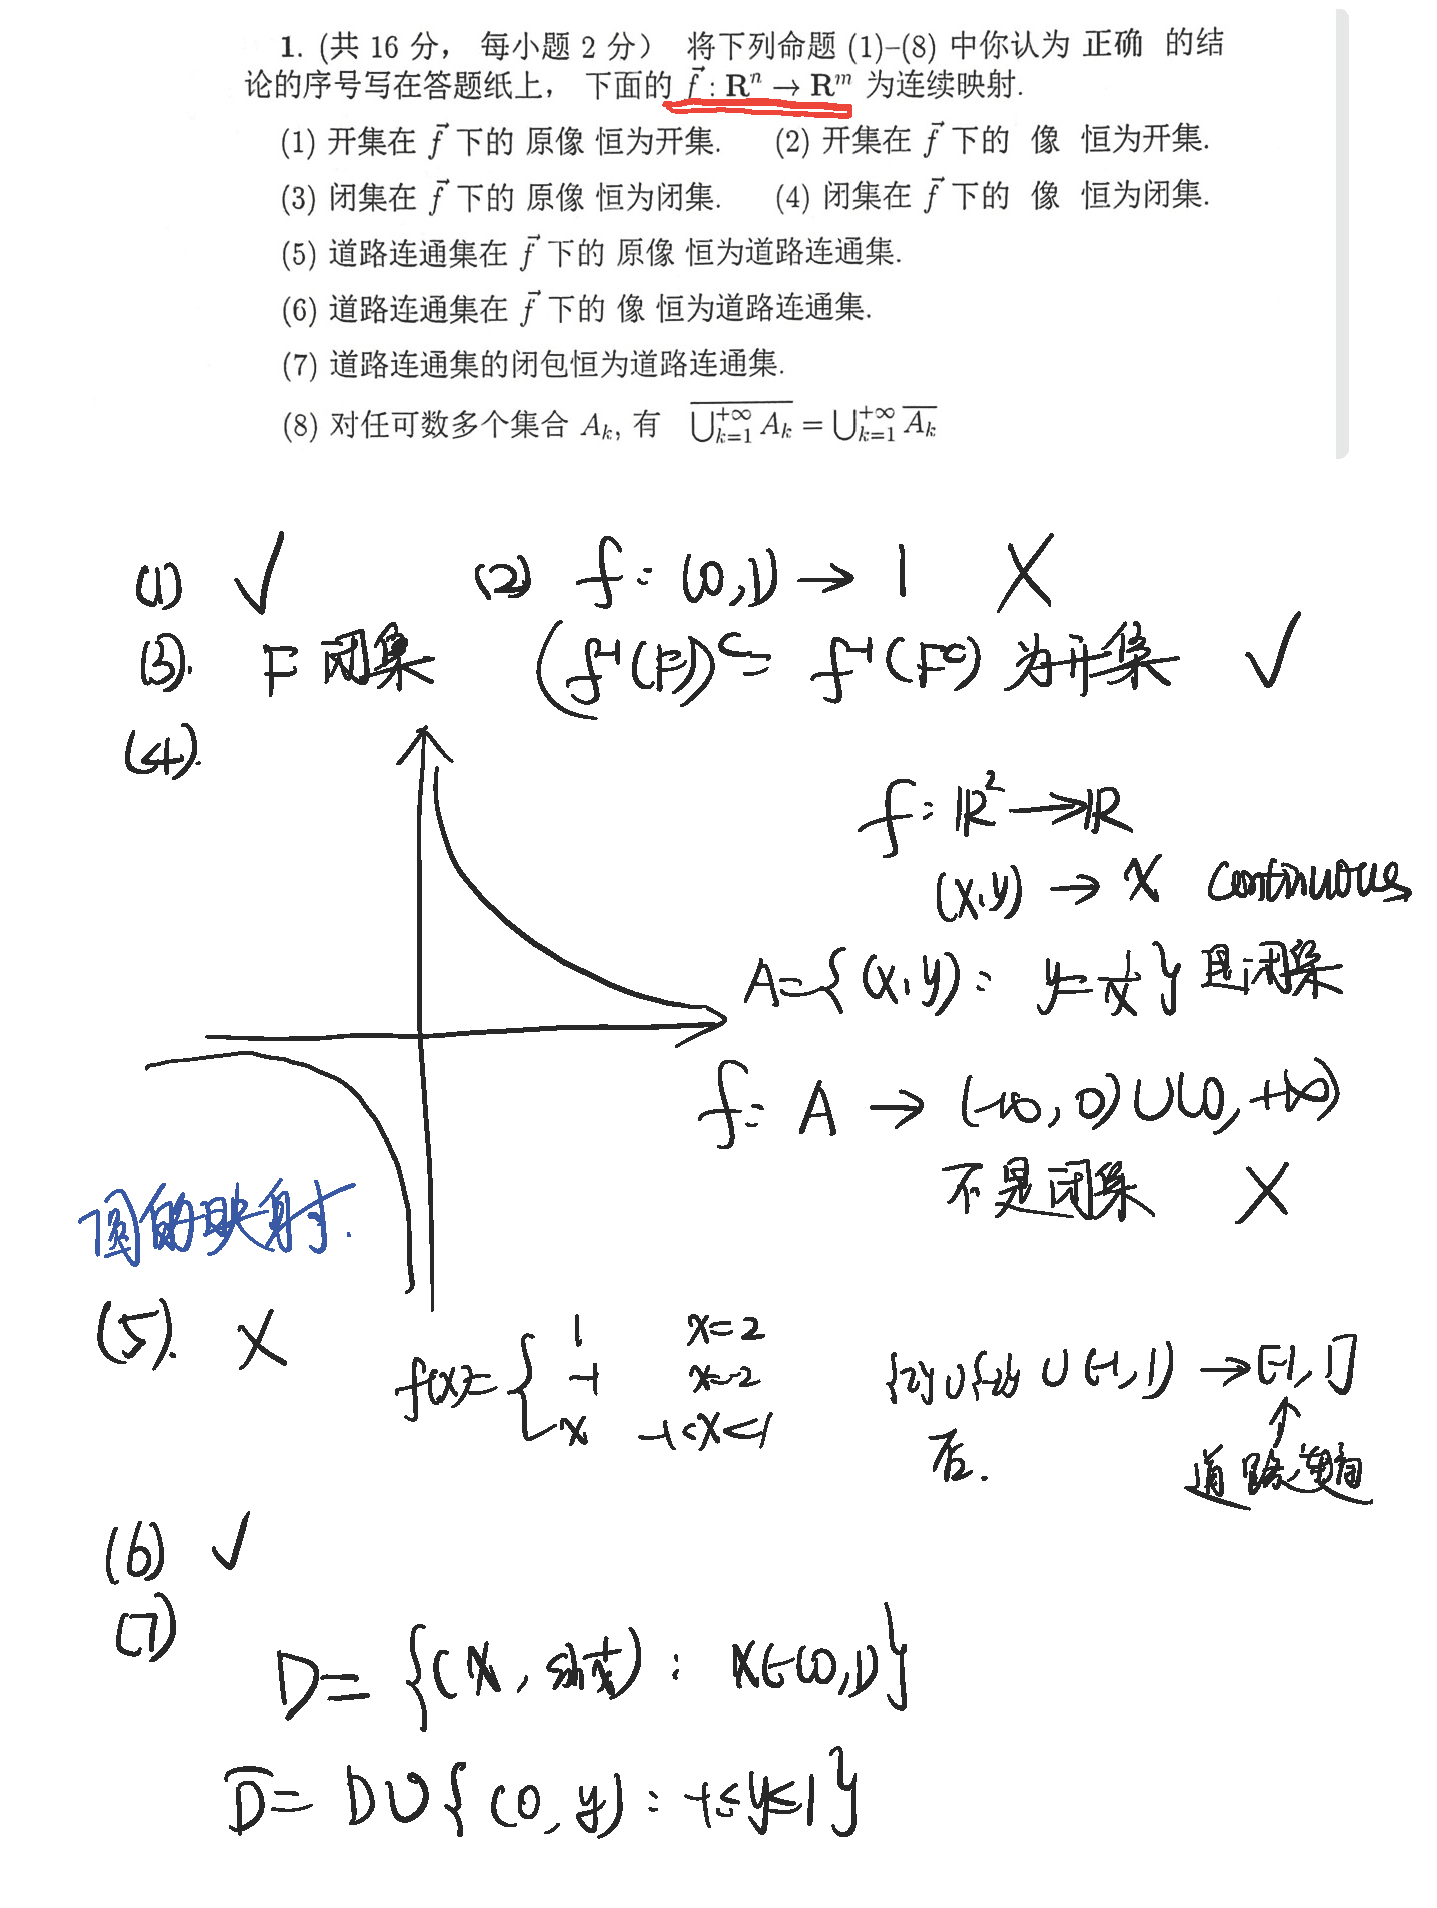 1. (共 16 分， 每小题 2 分） 将下列命题 (1)–(8) 中你认为 正确 的结
论的序号写在答题纸上， 下面的 $\vec{f}: \mathbf{R}^n \to \mathbf{R}^m$ 为连续映射.
(1) 开集在 $\vec{f}$ 下的 原像 恒为开集. (2) 开集在 $\vec{f}$ 下的 像 恒为开集.
(3) 闭集在 $\vec{f}$ 下的 原像 恒为闭集. (4) 闭集在 $\vec{f}$ 下的 像 恒为闭集.
(5) 道路连通集在 $\vec{f}$ 下的 原像 恒为道路连通集.
(6) 道路连通集在 $\vec{f}$ 下的 像 恒为道路连通集.
(7) 道路连通集的闭包恒为道路连通集.
(8) 对任可数多个集合 $A_k$, 有 $\overline{\bigcup_{k=1}^{+\infty} A_k} = \bigcup_{k=1}^{+\infty} \overline{A_k}$
(1) ✓ (2) f: (0,1) → 1 ✗
(3). F 闭集 $(f^{-1}(F))^c = f^{-1}(F^c)$ 为开集 ✓
(4).
f: ℝ² → ℝ
(x,y) → x continuous
A={(x,y): $y=\frac{1}{x}$} 是闭集
f: A → (-∞, 0)∪(0, +∞)
不是闭集 ✗
圆的映射.
(5). ✗ f(x)= { 1 x=2
-1 x=-2
x -1<x<1
{2}∪{-2}∪(-1,1) → [-1,1]
否. ↑
道路连通
(6) ✓
(7)
D= {(x, $\sin\frac{1}{x}$): x∈(0,1)}
$\overline{D}$= D∪{(0,y): -1≤y≤1}